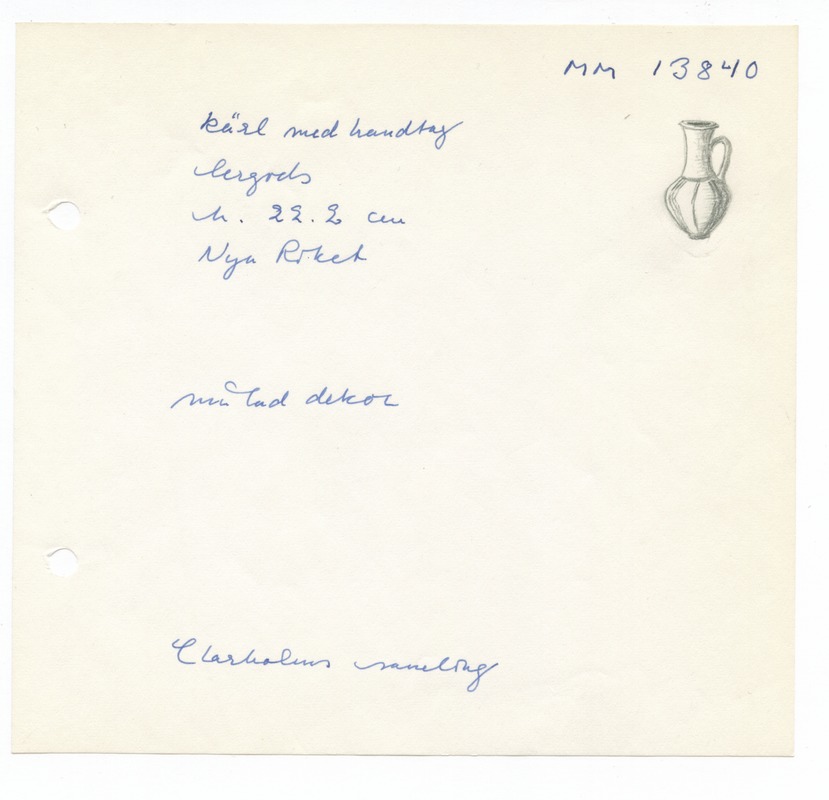 MM 13840
kärl med handtag
lergods
h. 22.2 cm
Nya Riket
målad dekor
Clarholms samling